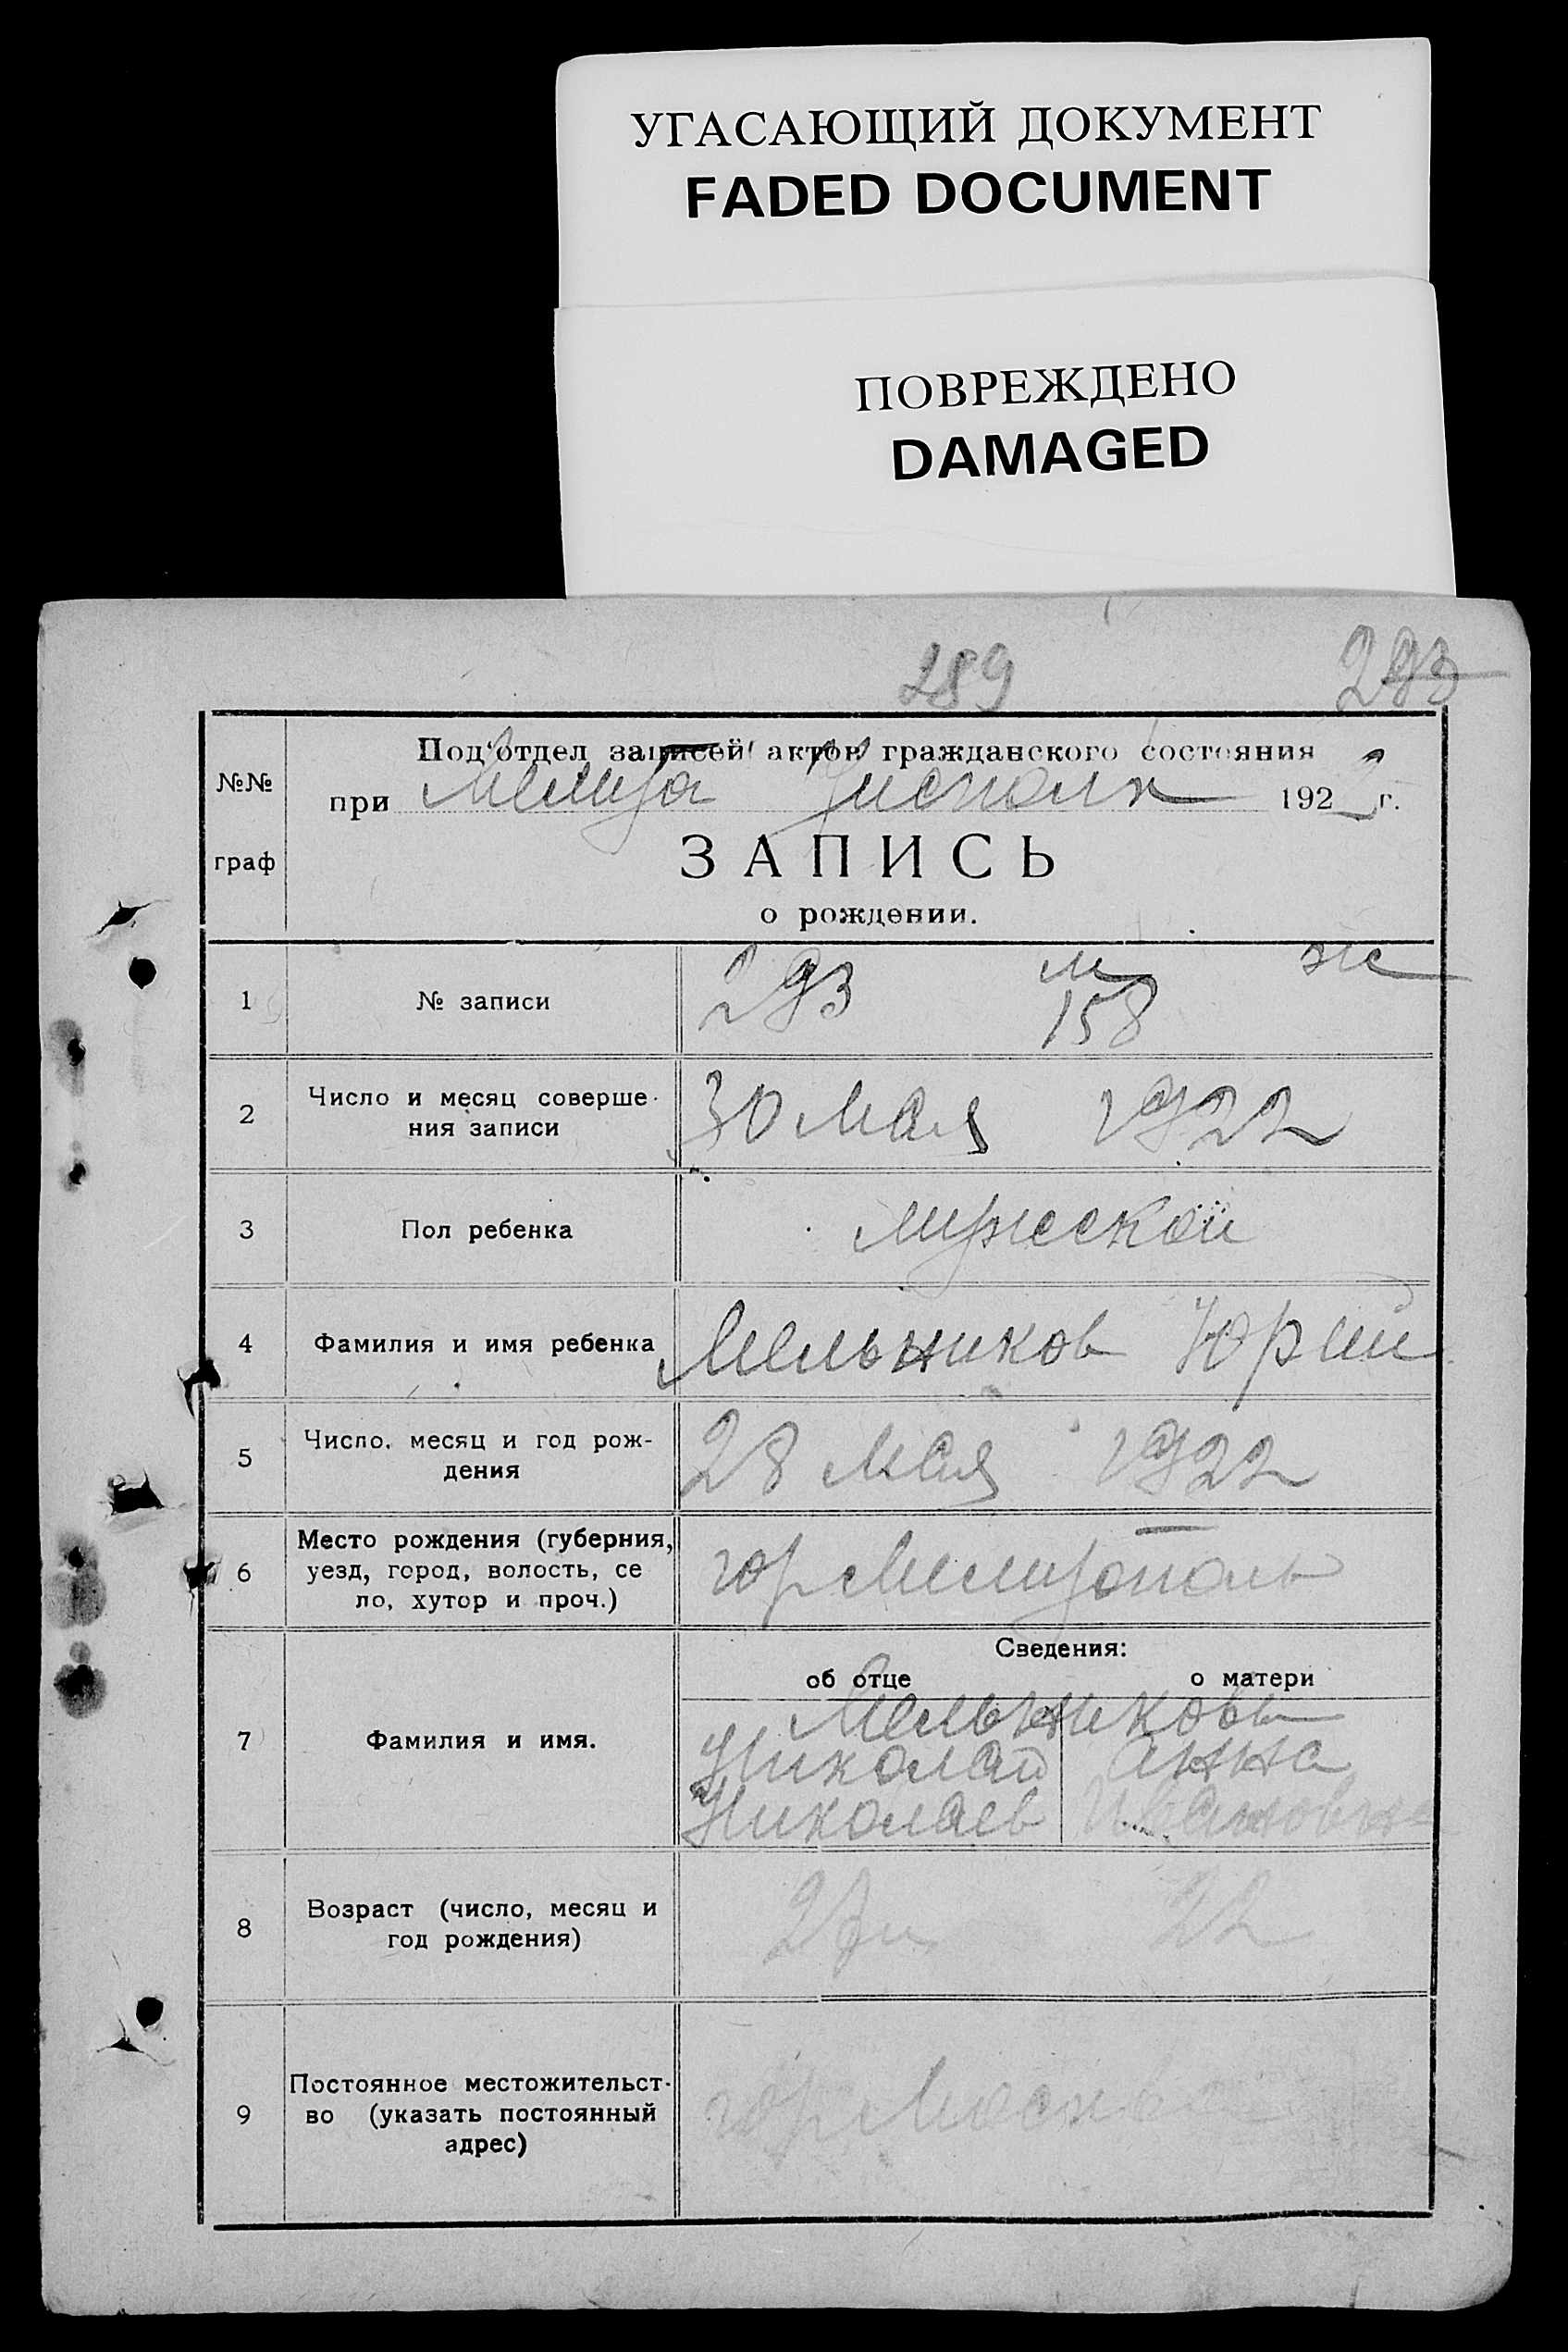 УГАСАЮЩИЙ ДОКУМЕНТ
FADED DOCUMENT
ПОВРЕЖДЕНО
DAMAGED
289 293
№№ граф
Подотдел записей актов гражданского состояния
при Мелитоп Уисполк 1922 г.
ЗАПИСЬ
о рождении.
1 № записи 293 м 158 ж
2 Число и месяц соверше-
ния записи 30 Мая 1922
3 Пол ребенка мужеской
4 Фамилия и имя ребенка Мельников Юрий
5 Число, месяц и год рож-
дения 28 мая 1922
6 Место рождения (губерния,
уезд, город, волость, се
ло, хутор и проч.) гор Мелитополь
Сведения:
об отце о матери
7 Фамилия и имя. Мельниковы
Николай Анна
Николаев Ивановна
8 Возраст (число, месяц и
год рождения) 22
9 Постоянное местожительст-
во (указать постоянный
адрес) гор Москва